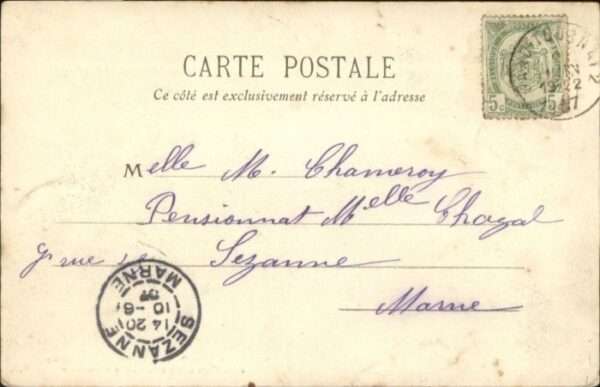 CARTE POSTALE
Ce côté est exclusivement réservé à l'adresse
5c 5c
Melle M. Chameroy
Pensionnat Melle Chazal
rue
Sezanne
Marne
SEZANNE
14 20
10 - 6
07
MARNE